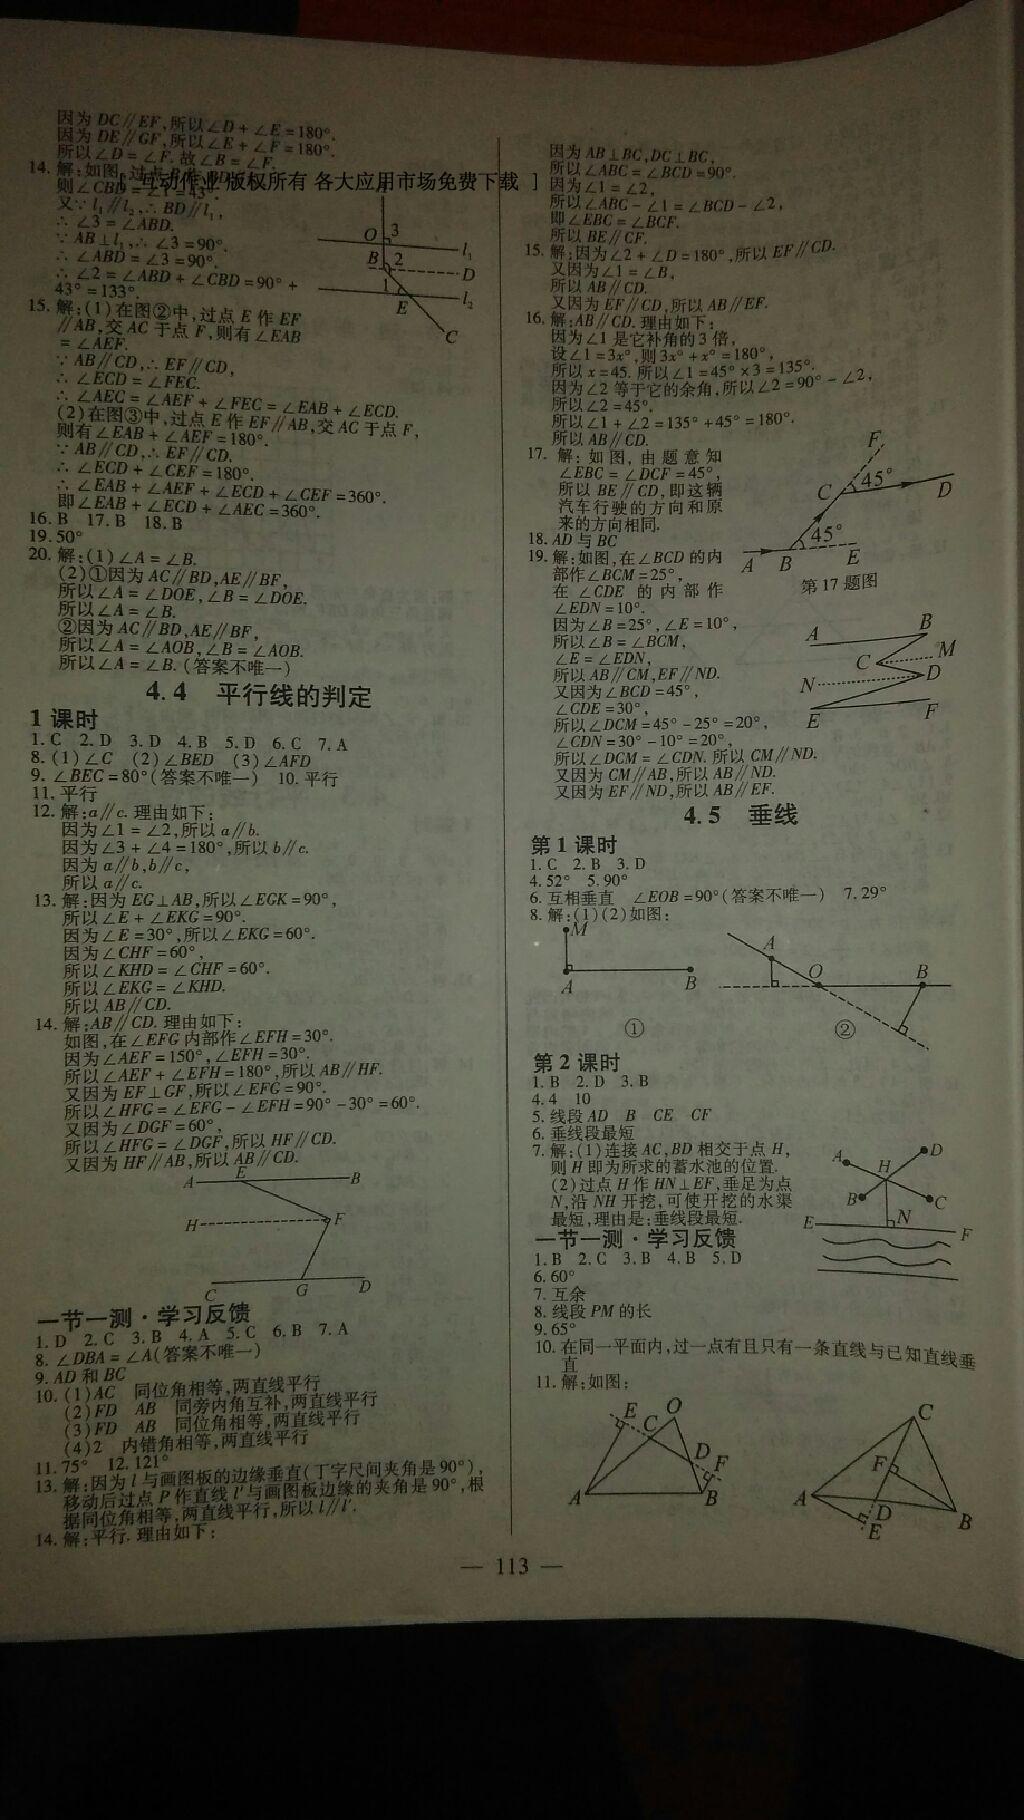 因为 DC∥EF,所以∠D+∠E=180°.
因为 DE∥GF,所以∠E+∠F=180°.
所以∠D=∠F.故∠B=∠F.
14.解:如图,过点
[ 互动作业 版权所有 各大应用市场免费下载 ]
则∠CBD=∠1=43°.
又∵l₁∥l₂,∴BD∥l₁,
∴∠3=∠ABD.
∵AB⊥l₁,∴∠3=90°.
∴∠ABD=∠3=90°.
∴∠2=∠ABD+∠CBD=90°+
43°=133°.
O 3 l₁
B 2 D
1 E l₂
C
15.解:(1)在图②中,过点 E 作 EF
∥AB,交 AC 于点 F,则有∠EAB
=∠AEF.
∵AB∥CD,∴EF∥CD,
∴∠ECD=∠FEC.
∴∠AEC=∠AEF+∠FEC=∠EAB+∠ECD.
(2)在图③中,过点 E 作 EF∥AB,交 AC 于点 F,
则有∠EAB+∠AEF=180°.
∵AB∥CD,∴EF∥CD.
∴∠ECD+∠CEF=180°.
∴∠EAB+∠AEF+∠ECD+∠CEF=360°.
即∠EAB+∠ECD+∠AEC=360°.
16.B 17.B 18.B
19.50°
20.解:(1)∠A=∠B.
(2)①因为 AC∥BD,AE∥BF,
所以∠A=∠DOE,∠B=∠DOE.
所以∠A=∠B.
②因为 AC∥BD,AE∥BF,
所以∠A=∠AOB,∠B=∠AOB.
所以∠A=∠B.(答案不唯一)
4.4 平行线的判定
1 课时
1.C 2.D 3.D 4.B 5.D 6.C 7.A
8.(1)∠C (2)∠BED (3)∠AFD
9.∠BEC=80°(答案不唯一) 10.平行
11.平行
12.解:a∥c.理由如下:
因为∠1=∠2,所以 a∥b.
因为∠3+∠4=180°,所以 b∥c.
因为 a∥b,b∥c,
所以 a∥c.
13.解:因为 EG⊥AB,所以∠EGK=90°,
所以∠E+∠EKG=90°.
因为∠E=30°,所以∠EKG=60°.
因为∠CHF=60°,
所以∠KHD=∠CHF=60°.
所以∠EKG=∠KHD.
所以 AB∥CD.
14.解:AB∥CD.理由如下:
如图,在∠EFG 内部作∠EFH=30°.
因为∠AEF=150°,∠EFH=30°.
所以∠AEF+∠EFH=180°,所以 AB∥HF.
又因为 EF⊥GF,所以∠EFG=90°.
所以∠HFG=∠EFG-∠EFH=90°-30°=60°.
又因为∠DGF=60°,
所以∠HFG=∠DGF,所以 HF∥CD.
又因为 HF∥AB,所以 AB∥CD.
A E B
H F
C G D
一节一测·学习反馈
1.D 2.C 3.B 4.A 5.C 6.B 7.A
8.∠DBA=∠A(答案不唯一)
9.AD 和 BC
10.(1)AC 同位角相等,两直线平行
(2)FD AB 同旁内角互补,两直线平行
(3)FD AB 同位角相等,两直线平行
(4)2 内错角相等,两直线平行
11.75° 12.121°
13.解:因为 l 与画图板的边缘垂直(丁字尺间夹角是 90°),
移动后过点 P 作直线 l′与画图板边缘的夹角是 90°,根
据同位角相等,两直线平行,所以 l∥l′.
14.解:平行.理由如下:
因为 AB⊥BC,DC⊥BC,
所以∠ABC=∠BCD=90°.
因为∠1=∠2,
所以∠ABC-∠1=∠BCD-∠2,
即∠EBC=∠BCF.
所以 BE∥CF.
15.解:因为∠2+∠D=180°,所以 EF∥CD.
又因为∠1=∠B,
所以 AB∥CD.
又因为 EF∥CD,所以 AB∥EF.
16.解:AB∥CD.理由如下:
因为∠1 是它补角的 3 倍,
设∠1=3x°,则 3x°+x°=180°,
所以 x=45.所以∠1=45°×3=135°.
因为∠2 等于它的余角,所以∠2=90°-∠2,
所以∠2=45°.
所以∠1+∠2=135°+45°=180°.
所以 AB∥CD.
17.解:如图,由题意知
∠EBC=∠DCF=45°,
所以 BE∥CD,即这辆
汽车行驶的方向和原
来的方向相同.
F
C 45° D
45°
A B E
第 17 题图
18.AD 与 BC
19.解:如图,在∠BCD 的内
部作∠BCM=25°,
在∠CDE 的内部作
∠EDN=10°.
因为∠B=25°,∠E=10°,
所以∠B=∠BCM,
∠E=∠EDN,
所以 AB∥CM,EF∥ND.
又因为∠BCD=45°,
∠CDE=30°,
所以∠DCM=45°-25°=20°,
∠CDN=30°-10°=20°,
所以∠DCM=∠CDN.所以 CM∥ND.
又因为 CM∥AB,所以 AB∥ND.
又因为 EF∥ND,所以 AB∥EF.
A B
C M
N D
E F
4.5 垂线
第 1 课时
1.C 2.B 3.D
4.52° 5.90°
6.互相垂直 ∠EOB=90°(答案不唯一) 7.29°
8.解:(1)(2)如图:
M
A B
A O B
① ②
第 2 课时
1.B 2.D 3.B
4.4 10
5.线段 AD B CE CF
6.垂线段最短
7.解:(1)连接 AC,BD 相交于点 H,
则 H 即为所求的蓄水池的位置.
(2)过点 H 作 HN⊥EF,垂足为点
N,沿 NH 开挖,可使开挖的水渠
最短,理由是:垂线段最短.
A H D
B C
E N F
一节一测·学习反馈
1.B 2.C 3.B 4.B 5.D
6.60°
7.互余
8.线段 PM 的长
9.65°
10.在同一平面内,过一点有且只有一条直线与已知直线垂
直
11.解:如图:
E C O
D F
A B
C
F
A D B
E
— 113 —